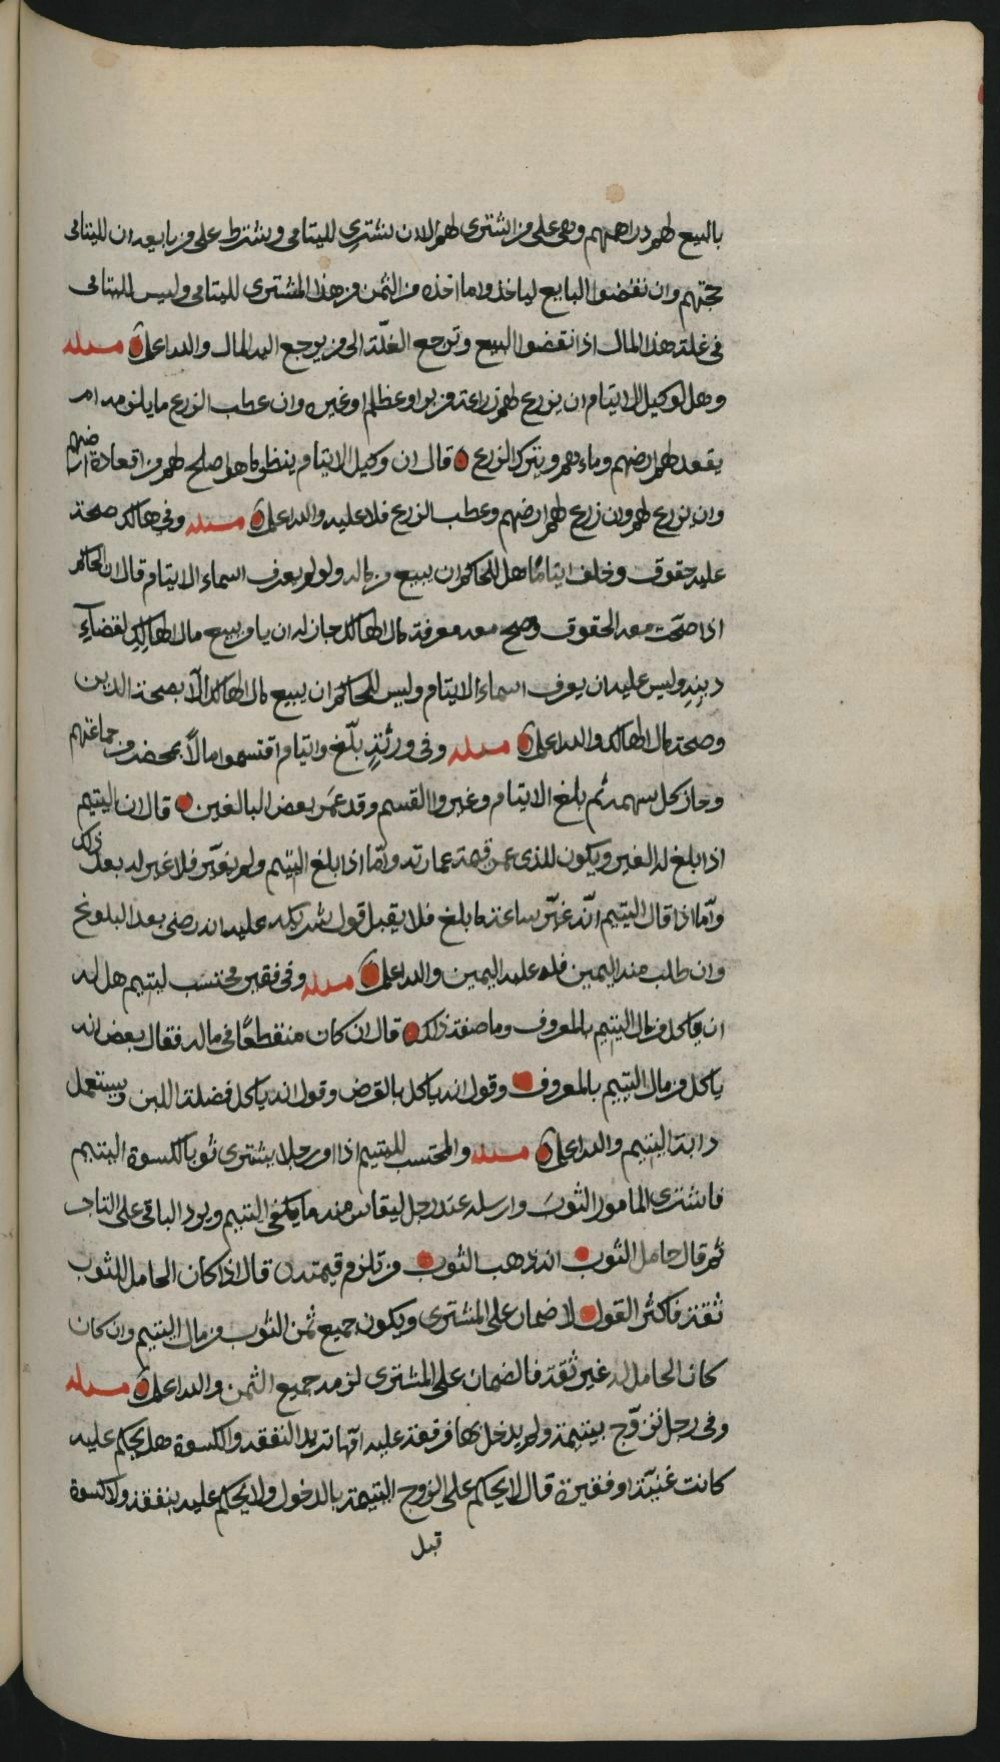 بالبيع لهم دراهمهم وهي على من اشترى لهم الا ان يشتري لليتامى ويشترط على من بايعه ان لليتامى
حجتهم وان نقضوا البايع لياخذوا ما اخذه من الثمن من هذا المشتري لليتامى وليس لليتامى
في غلة هذا المال اذا نقضوا البيع وترجع الغلّة الى من يرجع اليه المال والله اعلم مسئلة
وهل لوكيل الايتام ان يزرع لهم زراعة من بر او عظلم او غيره وان عطب الزرع ما يلزمه ام
يقعد لهم ارضهم وماءهم ويترك الزرع قال ان وكيل الايتام ينظر ما هو اصلح لهم من اقعادة ارضهم
وان يزرع لهم وان زرع لهم ارضهم وعطب الزرع فلا عليه والله اعلم مسئلة وفي هالك صحة
عليه حقوق وخلف ايتامًا هل للحاكم ان يبيع من ماله ولو لم يعرف اسماء الايتام قال ان الحاكم
اذا صحّت معه الحقوق وصح معه معرفة مال الهالك جاز له ان يامر ببيع مال الهالك لقضاء
دينه وليس عليه ان يعرف اسماء الايتام وليس للحاكم ان يبيع مال الهالك الّا بصحة الدين
وصحة مال الهالك والله اعلم مسئلة وفي ورثةٍ بلّغ وايتام اقتسموا مالًا بمحضر من جماعتهم
وحاز كل سهمه ثم بلغ الايتام وغيروا القسم وقد عمَر بعض البالغين قال ان اليتيم
اذا بلغ له الغير ويكون للذي عمر قيمة عمارته وامّا اذا بلغ اليتيم ولم يغيّر فلا غير له بعد ذلك
وامّا اذا قال اليتيم انّه غيّر ساعة ما بلغ فلا يقبل قول شريكه عليه انه رضي بعد البلوغ
وان طلب منه اليمين فله عليه اليمين والله اعلم مسئلة وفي فقير محتسب ليتيم هل له
ان ياكل من مال اليتيم بالمعروف وما صفة ذلك قال ان كان منقطعًا في ماله فقال بعض انه
ياكل من مال اليتيم بالمعروف وقول انه ياكل بالقرض وقول انه ياكل فضلة اللبن ويستعمل
دابة اليتيم والله اعلم مسئلة والمحتسب لليتيم اذا امر رجلا يشتري ثوبا لكسوة اليتيم
فاشترى المامور الثوبَ وارسله عند رجل ليقاس منه ما يكفي اليتيم ويرد الباقي على التاجر
ثم قال حامل الثوب انه ذهب الثوب من تلزم قيمته قال اذا كان الحامل للثوب
ثقة فاكثر القول لا ضمان على المشتري ويكون جميع ثمن الثوب من مال اليتيم وان كان
كان الحامل له غير ثقة فالضمان على المشتري لزمه جميع الثمن والله اعلم مسئلة
وفي رجل تزوّج بيتيمة ولم يدخل بها فرفعت عليه امّها تريد النفقة والكسوة هل يحكم عليه
كانت غنيّة او فقيرة قال لا يحكم على الزوج اليتيمة بالدخول ولا يحكم عليه بنفقة ولا كسوة
قبل